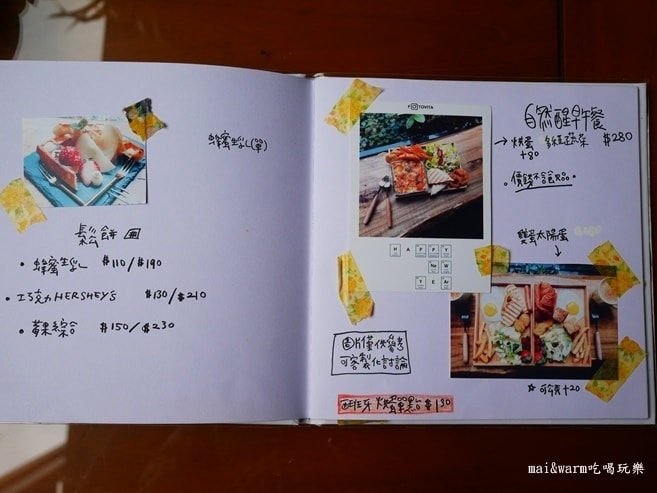 蜂蜜生乳(單)
鬆餅
• 蜂蜜生乳 $110/$190
• 巧克力HERSHEY'S $130/$210
• 莓果綜合 $150/$230
自然醒早午餐
→ 烘蛋 蔬菜 $280
+80
• 價錢不含飲品
雙蛋太陽蛋
↓
HAPPY
NeW
YEAr
圖片僅供參考
可客製化討論
西班牙烘蛋 $130
+20
mai&warm吃喝玩樂